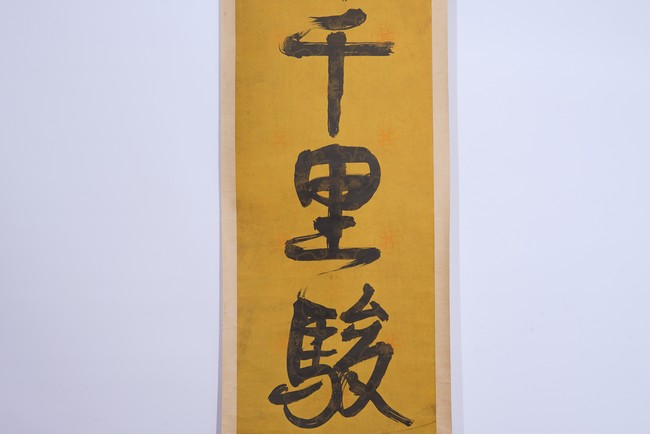 千里駿